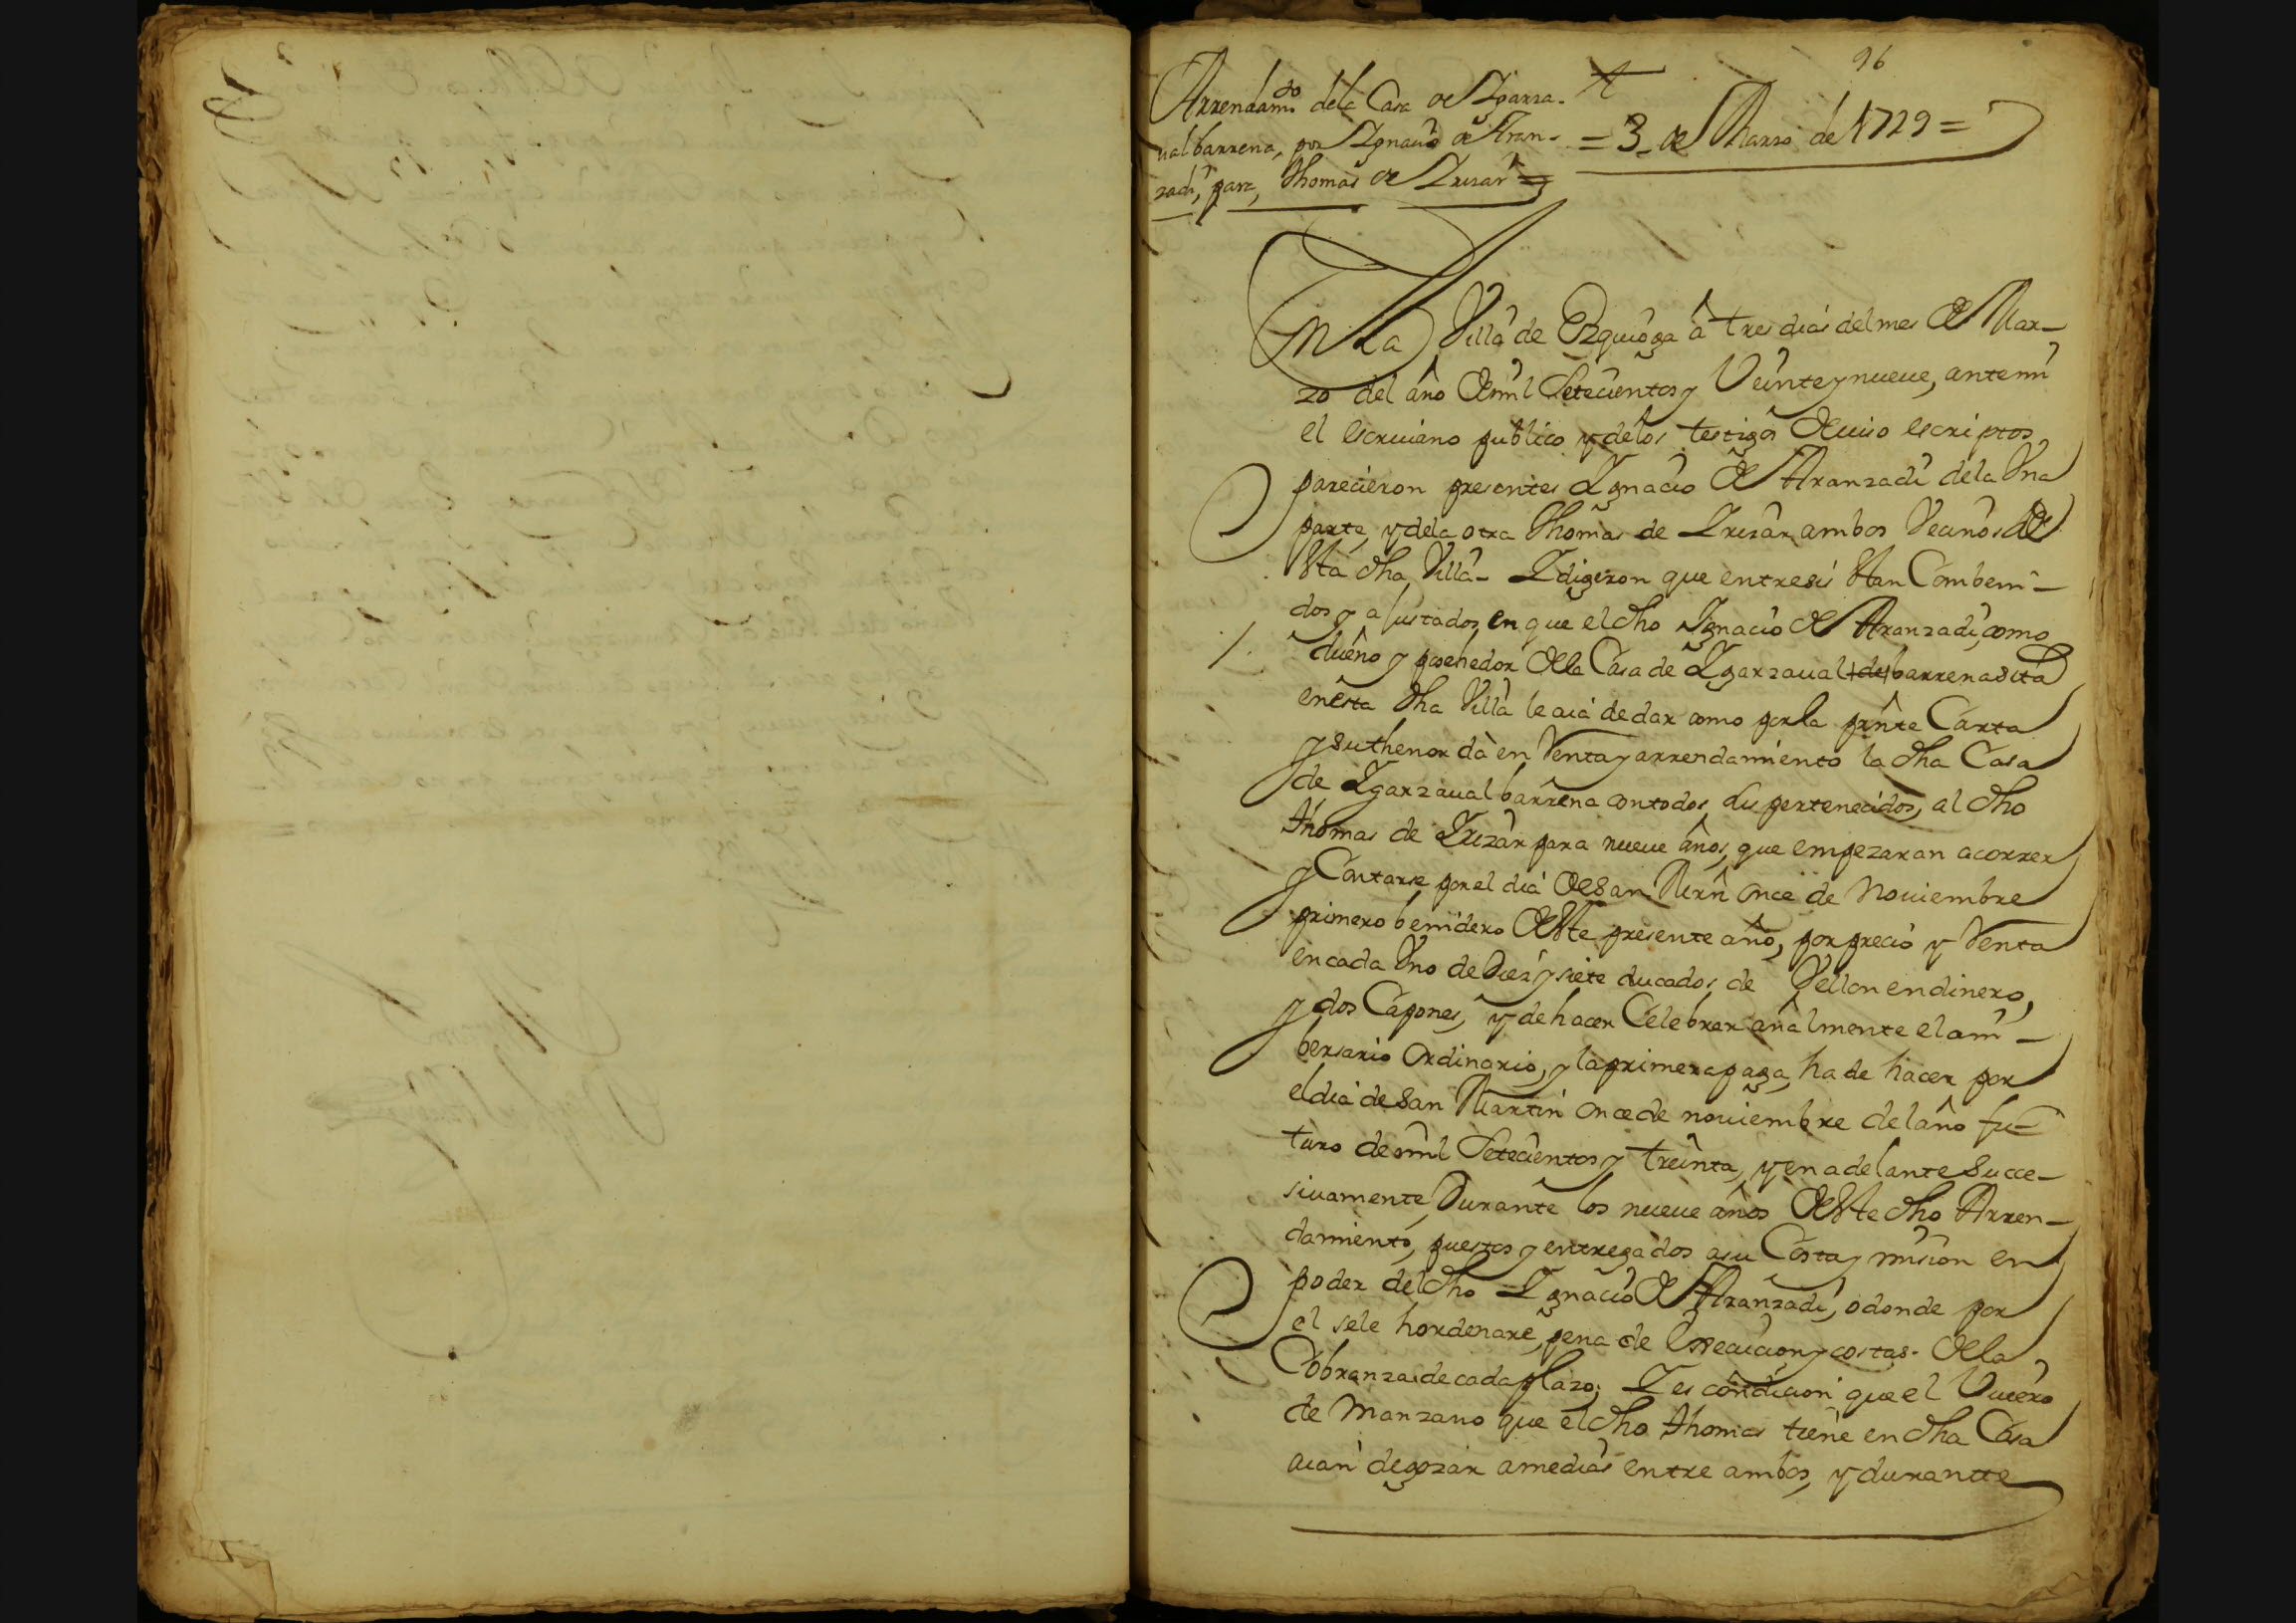 96
Arrendam.to dela Casa de Ygarza-
ualbarrena, por Ygnacio de Aran-
zadi, para, Thomas de Yrizar =
= 3 de Marzo de 1729 =
En La Villa de Ezquioga â tres dias del mes de Mar-
zo del año de mil Setecientos y Veinte y nueue, ante mi
el escriuano publico y delos testigos de iuso escriptos
parecieron presentes Ygnacio de Aranzadi dela Una
parte, y dela otra Thomas de Yrizar ambos Vecinos de
esta dha Villa - Y digeron que entresi estan Combeni-
dos y ajustados, en que el dho Ygnacio de Aranzadi, como
dueño y posehedor de la Casa de Ygarzaual de barrena sita
en esta dha Villa le aia de dar como por la prnte Carta
y su thenor dà en Renta y arrendamiento la dha Casa
de Ygarzaual barrena con todos sus pertenecidos, al dho
thomas de Yrizar para nueue años, que empezaran a correr
y Contarse por el dia de San Mrn once de Nouiembre
primero benidero deste presente año, por precio y Renta
en cada Uno de Diez y siete ducados de Vellon en dinero,
y dos Capones, y de hacer Celebrar añalmente el ani-
bersario ordinario, y la primera paga, ha de hacer por
el dia de San Martin once de nouiembre del año fu-
turo de mil Setecientos y treinta, y en adelante Succe-
siuamente, Durante los nueue años deste dho Arren-
damiento, puestos y entregados a su Costa y mision en
poder del dho Ygnacio de Aranzadi, o donde por
el se le hordenare, pena de execucion y costas de la
Cobranza de cada plazo; Y es condicion que el Viuero
de Manzano que el dho thomas tiene en dha Casa
aian de gozar a medias entre ambos, y durantte